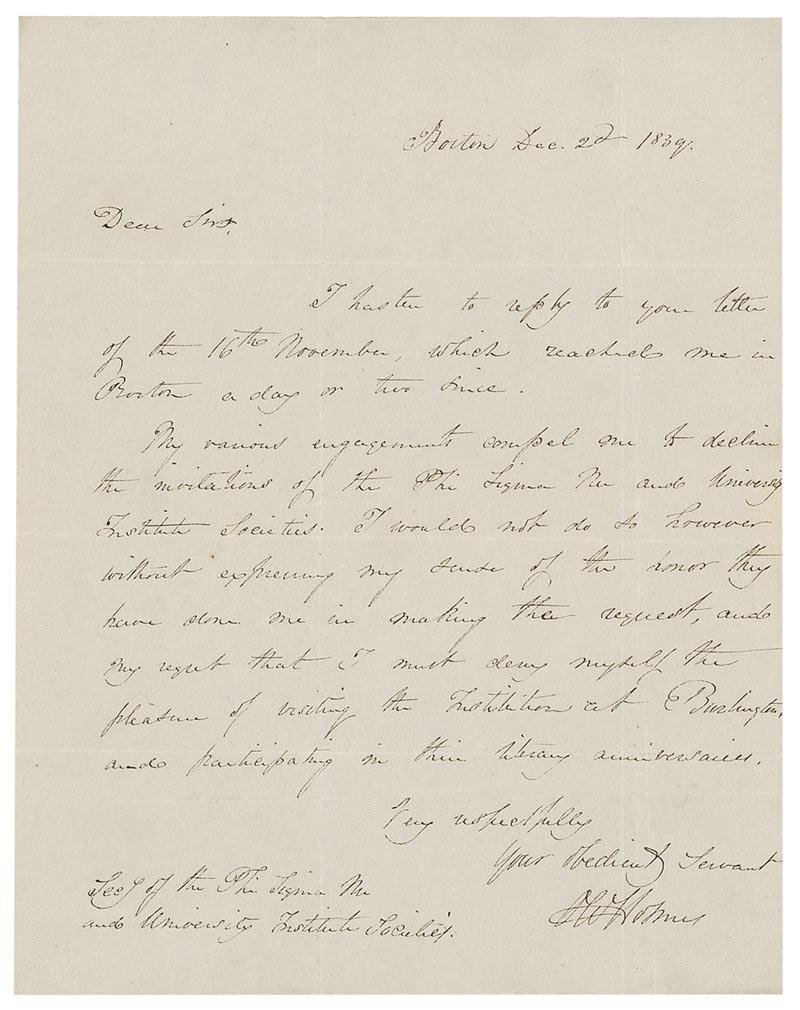 Boston Dec. 2d 1839.
Dear Sirs,
I hasten to reply to your letter
of the 16th November, which reached me in
Boston a day or two since.
My various engagements compel me to decline
the invitations of the Phi Sigma Nu and University
Institute Societies. I would not do so however
without expressing my sense of the honor they
have done me in making the request, and
my regret that I must deny myself the
pleasure of visiting the Institution at Burlington,
and participating in their literary anniversaries.
Very respectfully
Your obedient Servant
OW Holmes
Secy of the Phi Sigma Nu
and University Institute Societies.